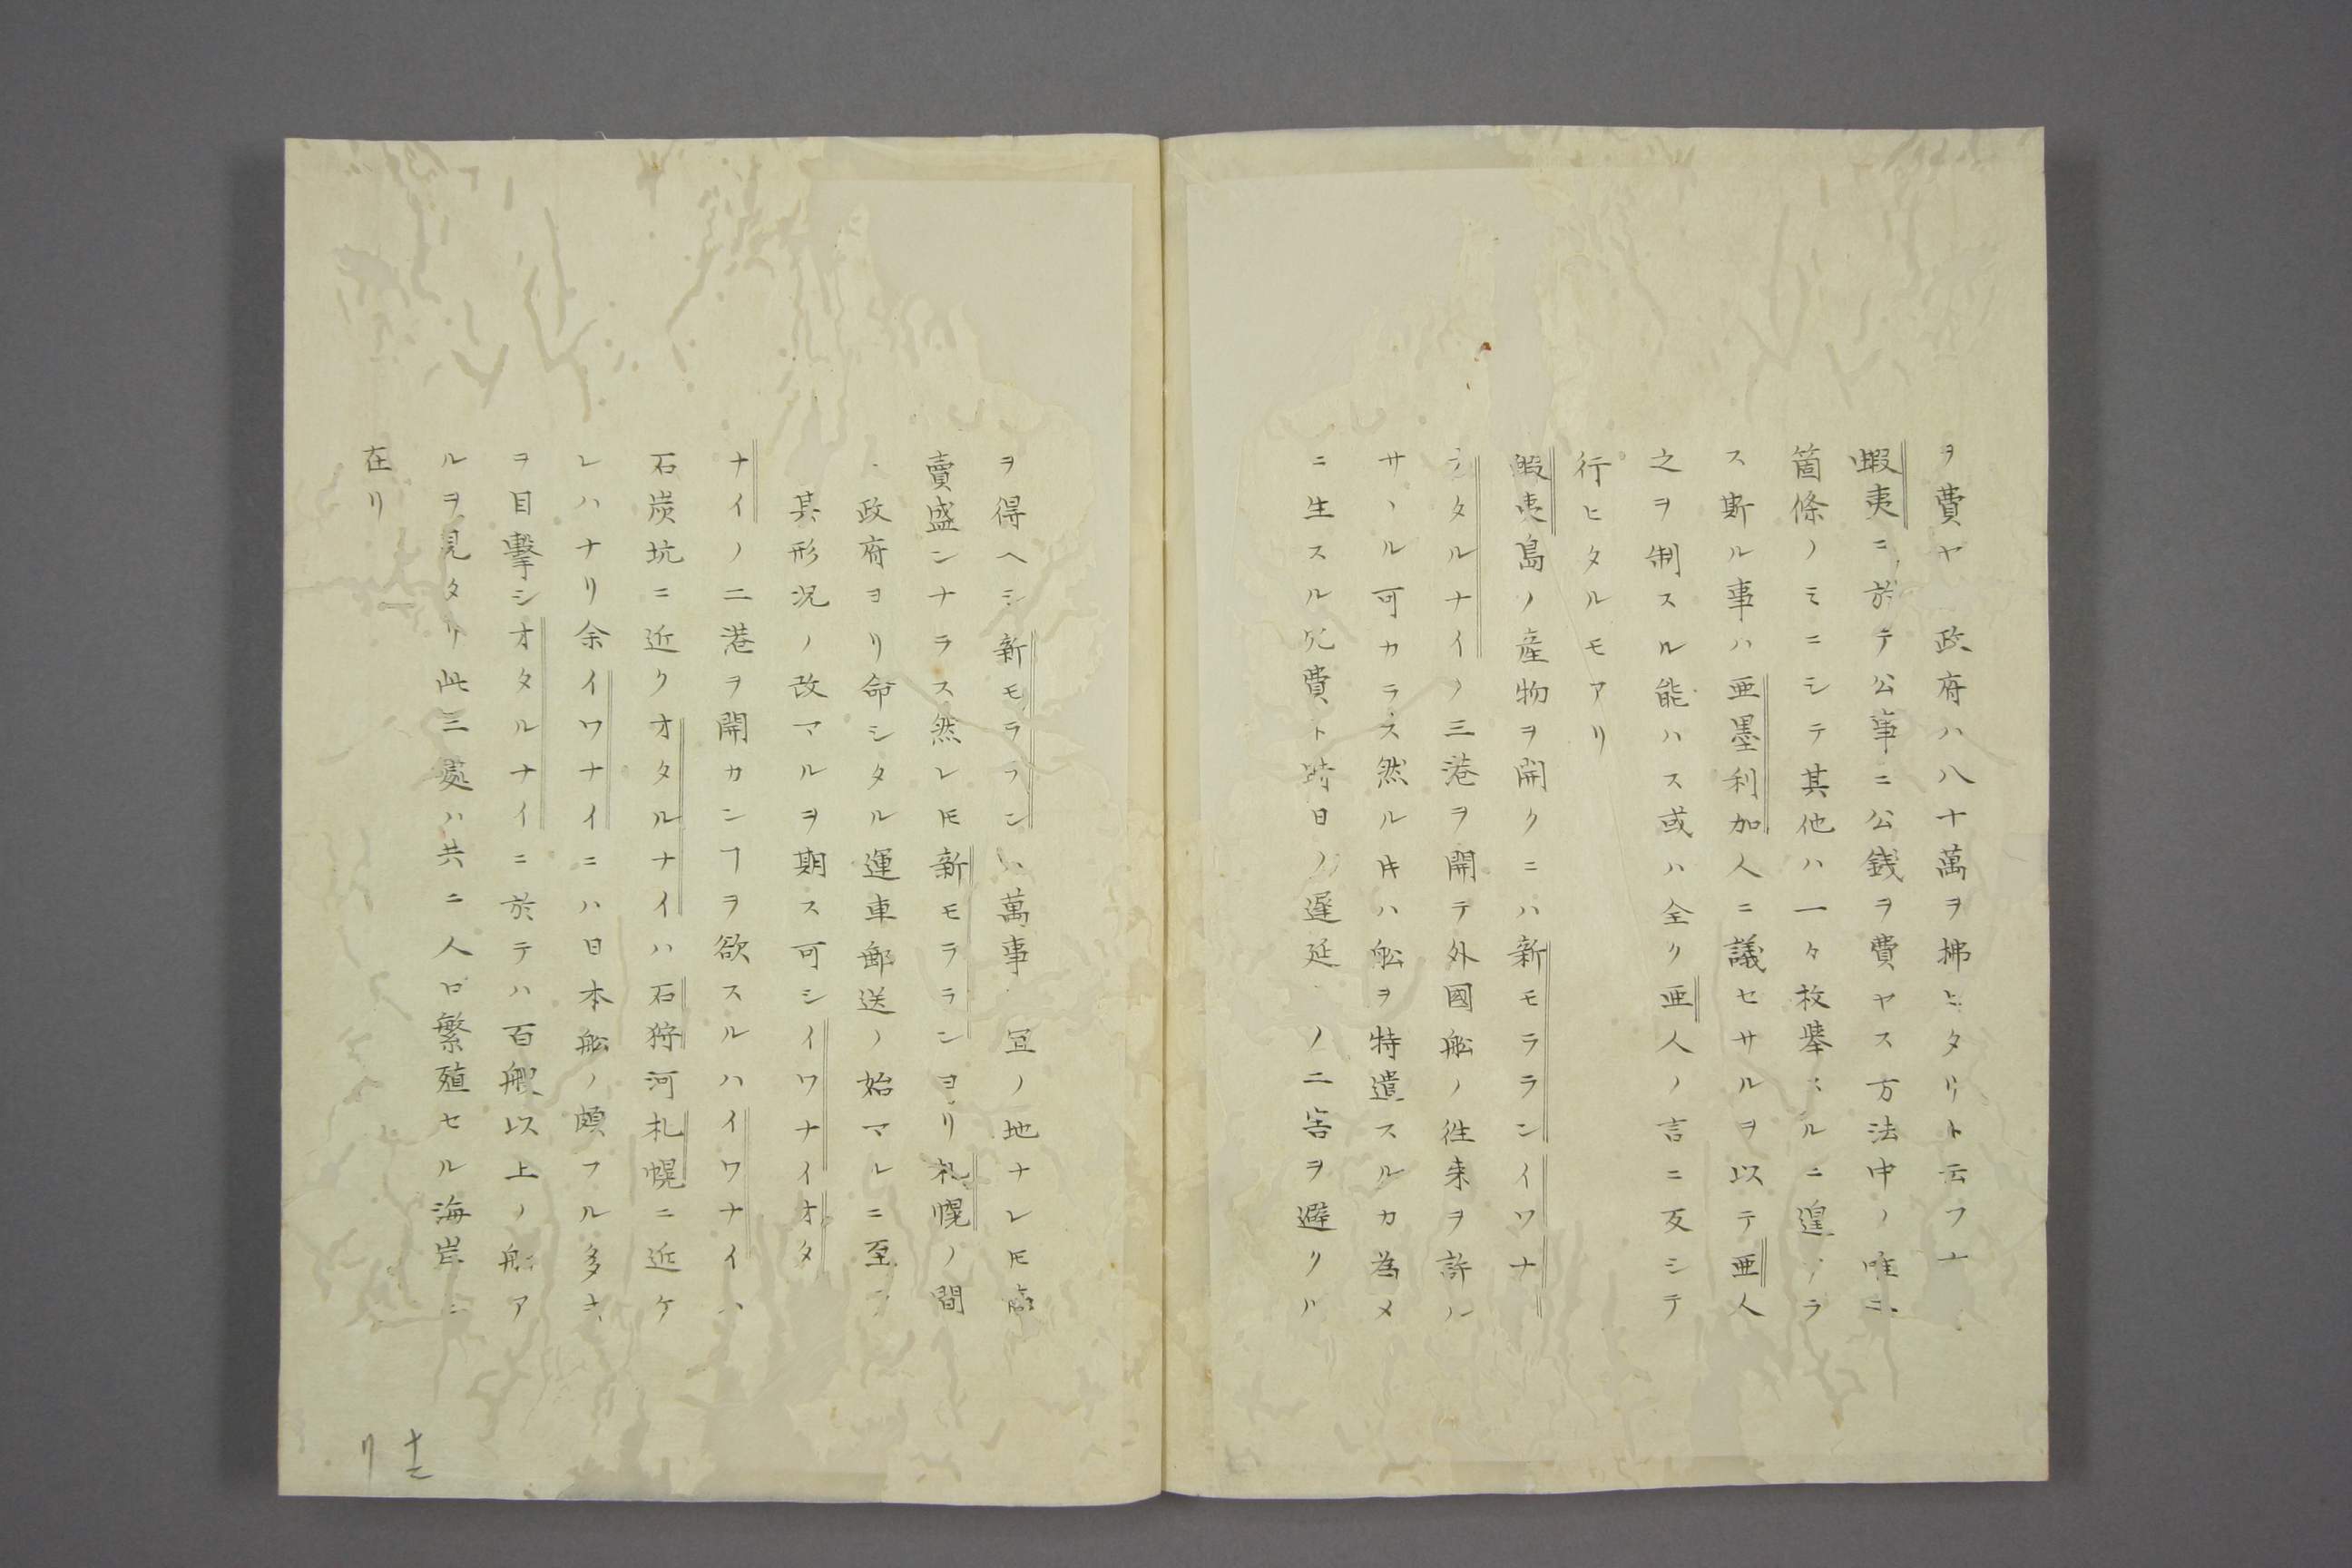 ヲ費ヤ 政府ハ八十萬ヲ拂ヒタリト云フ
蝦夷ニ於テ公事ニ公銭ヲ費ヤス方法中ノ唯二
箇條ノミニシテ其他ハ一々枚挙スルニ遑アラ
ス斯ル事ハ亜墨利加人ニ議セサルヲ以テ亜人
之ヲ制スル能ハス或ハ全ク亜人ノ言ニ反シテ
行ヒタルモアリ
蝦夷島ノ産物ヲ開クニハ新モララン イワナ
ヲタルナイノ三港ヲ開テ外國舩ノ徃来ヲ許サ
サヽル可カラス然ル𪜈ハ舩ヲ特遣スルカ為メ
ニ生スル冗費ト時日ノ遅延 ノ二害ヲ避クル
ヲ得ヘシ新モララン ハ萬事 冝ノ地ナレ𪜈
賣盛ンナラス然レ𪜈新モラランヨリ札幌ノ間
政府ヨリ命シタル運車郵送ノ始マルニ至
其形況ノ改マルヲ期ス可シイワナイオタ
ナイノ二港ヲ開カンヿヲ欲スルハイワナイハ
石炭坑ニ近クオタルナイハ石狩河札幌ニ近ケ
レハナリ余イワナイニハ日本舩ノ頗フル多キ
ヲ目撃シオタルナイニ於テハ百艘以上ノ船ア
ルヲ見タリ此三處ハ共ニ人口繁殖セル海岸ニ
在リ